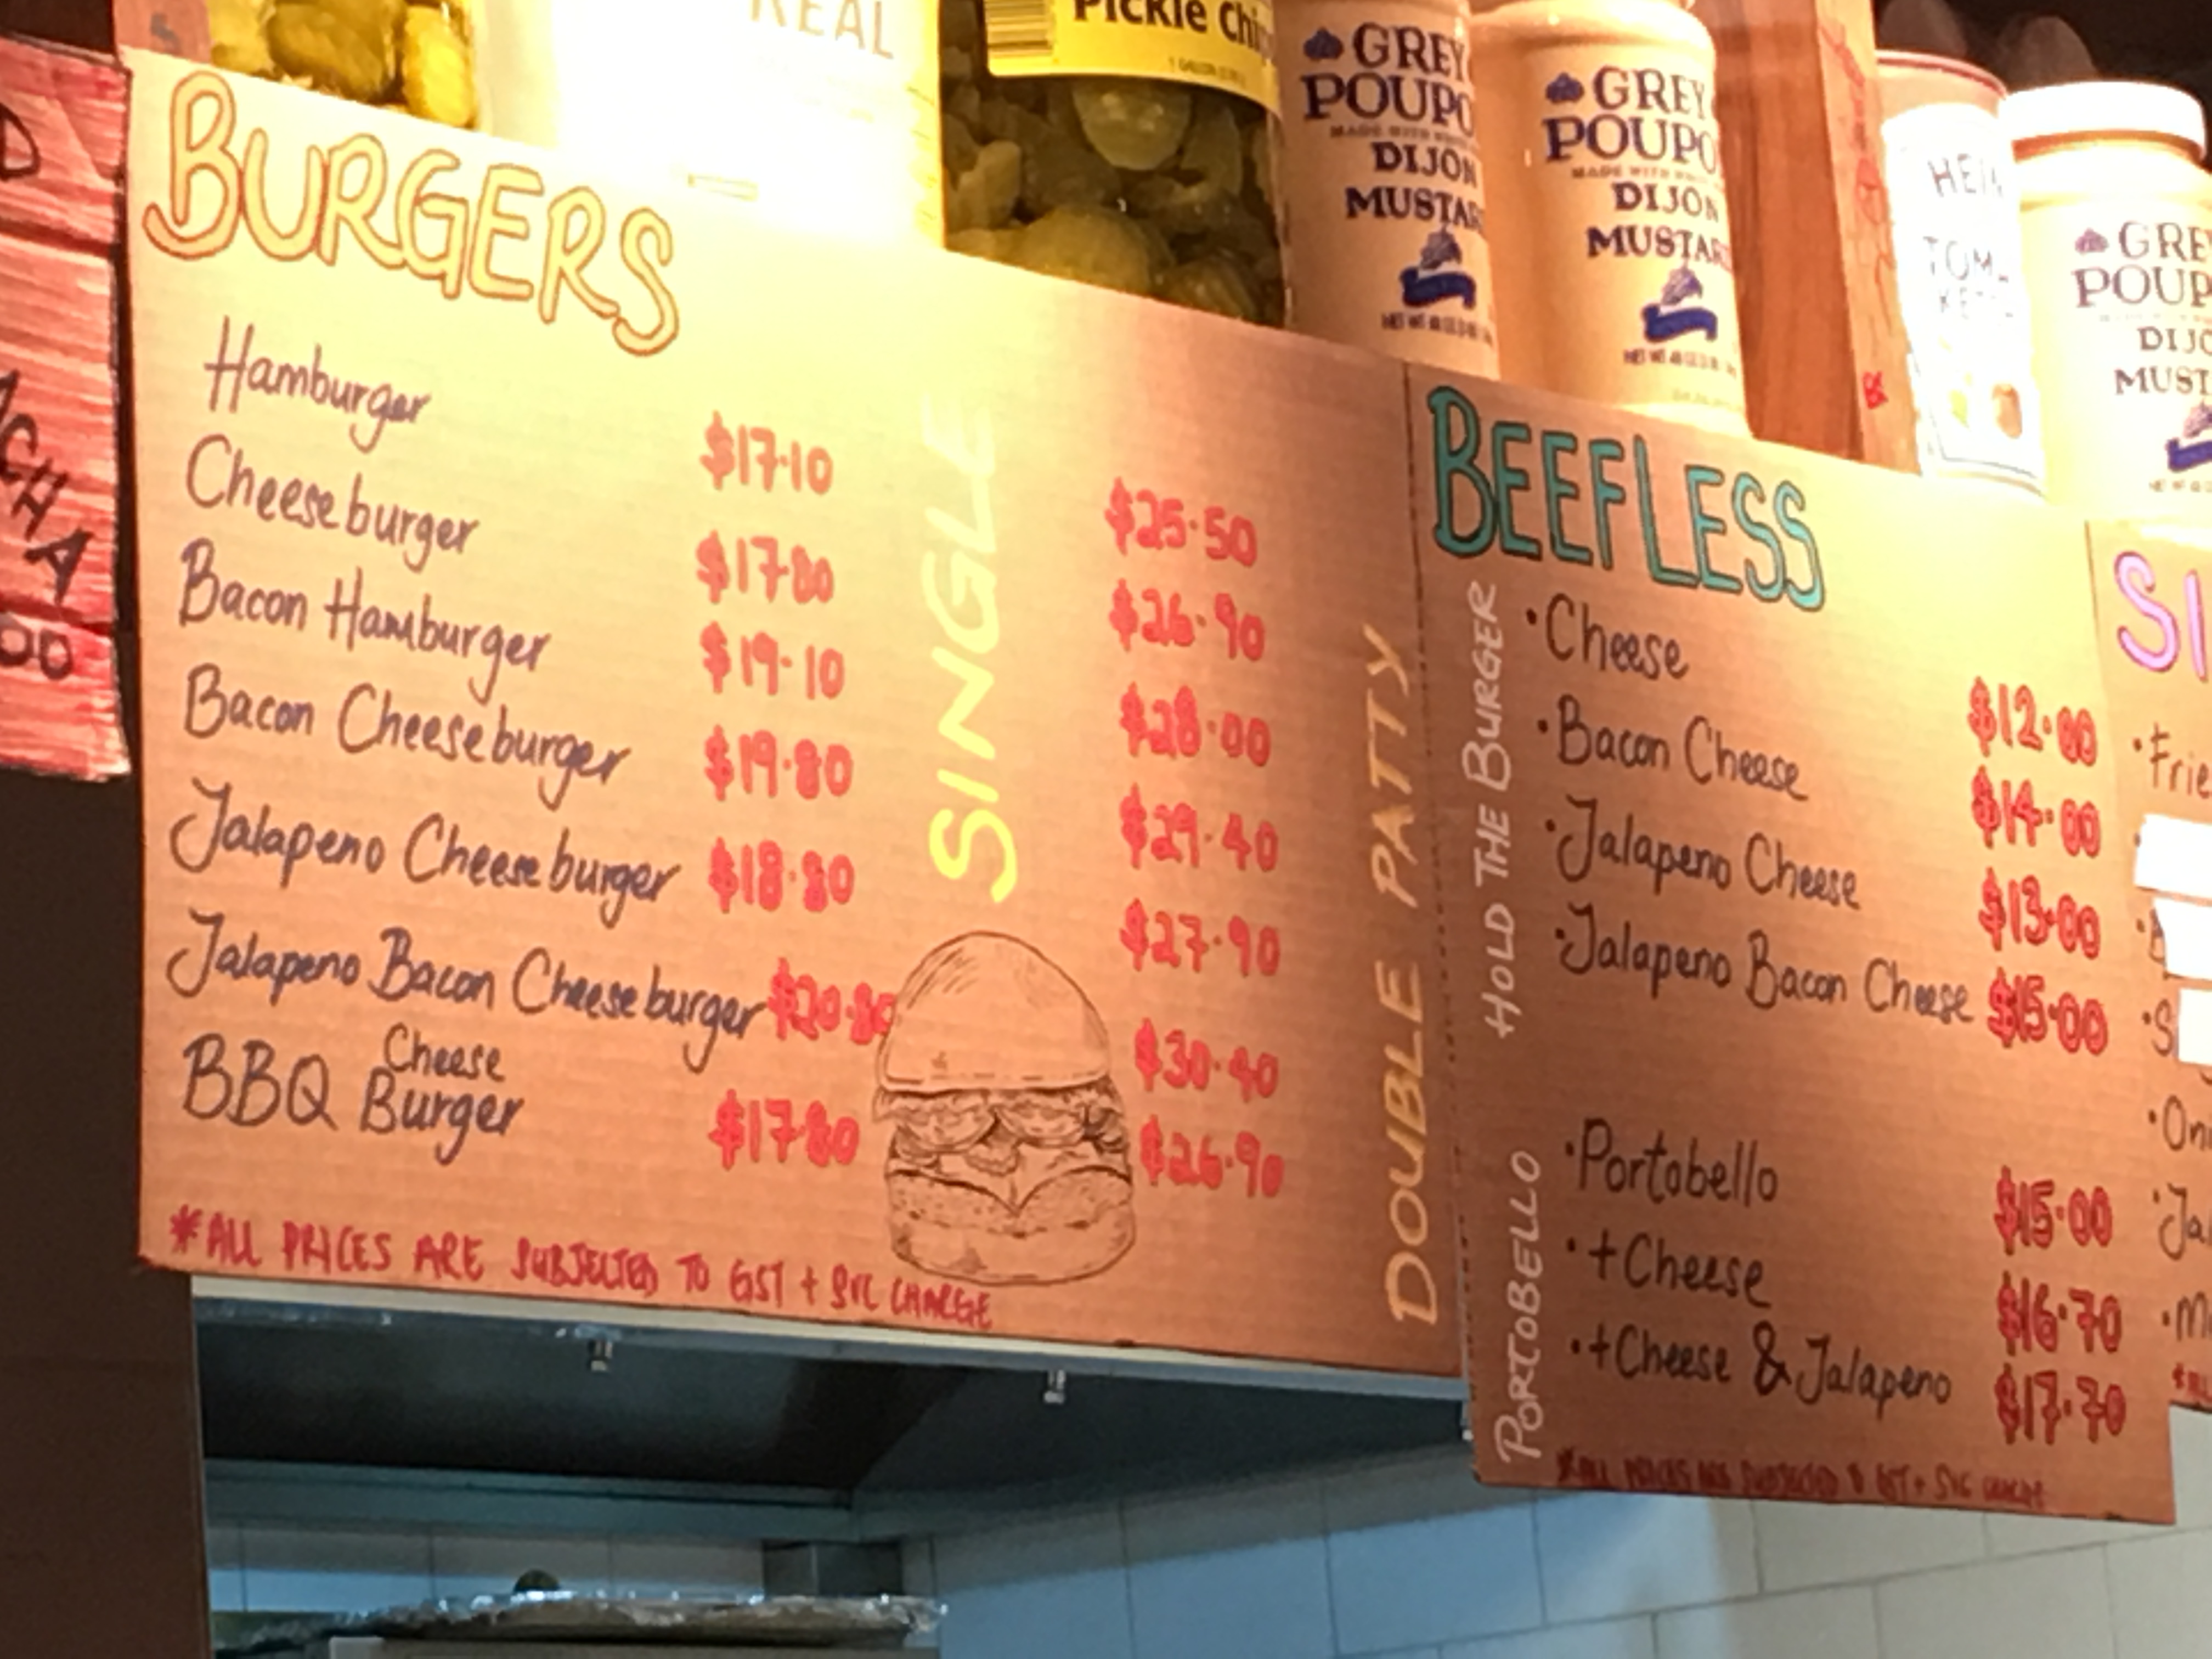 REAL
Pickle Chi
GREY
POUPO
DIJON
MUSTAR
GREY
POUPO
DIJON
MUSTAR
HEIN
TOM
KETC
GRE
POUP
DIJO
MUST
D
ACHA
00
BURGERS
SINGLE
DOUBLE PATTY
Hamburger $17.10 $25.50
Cheeseburger $17.80 $26.90
Bacon Hamburger $19.10 $28.00
Bacon Cheeseburger $19.80 $29.40
Jalapeno Cheeseburger $18.80 $27.90
Jalapeno Bacon Cheeseburger $20.80 $30.40
BBQ Cheese Burger $17.80 $26.90
*ALL PRICES ARE SUBJECTED TO GST + SVC CHARGE
BEEFLESS
HOLD THE BURGER
·Cheese $12.00
·Bacon Cheese $14.00
·Jalapeno Cheese $13.00
·Jalapeno Bacon Cheese $15.00
PORTOBELLO
·Portobello $15.00
·+Cheese $16.70
·+Cheese & Jalapeno $17.70
*ALL PRICES ARE SUBJECTED TO GST + SVC CHARGE
SI
·Frie
·S
·Oni
·Ja
·M